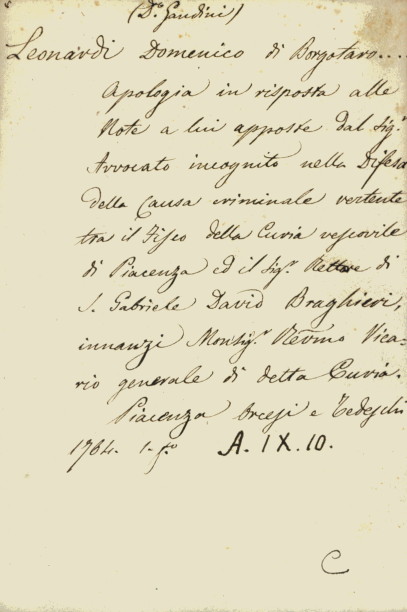 (Dr. Gandini)
Leonardi Domenico di Borgotaro....
Apologia in risposta alle
Note a lui apposte dal Sigr.
Avvocato incognito nella Difesa
della Causa criminale vertente
tra il Fisco della Curia vescovile
di Piacenza ed il Sigr. Rettore di
S. Gabriele David Braghieri,
innanzi Monsigr. Revmo Vica-
rio generale di detta Curia.
Piacenza Orcesi e Tedeschi
1764. 1. fo A. IX. 10.
C